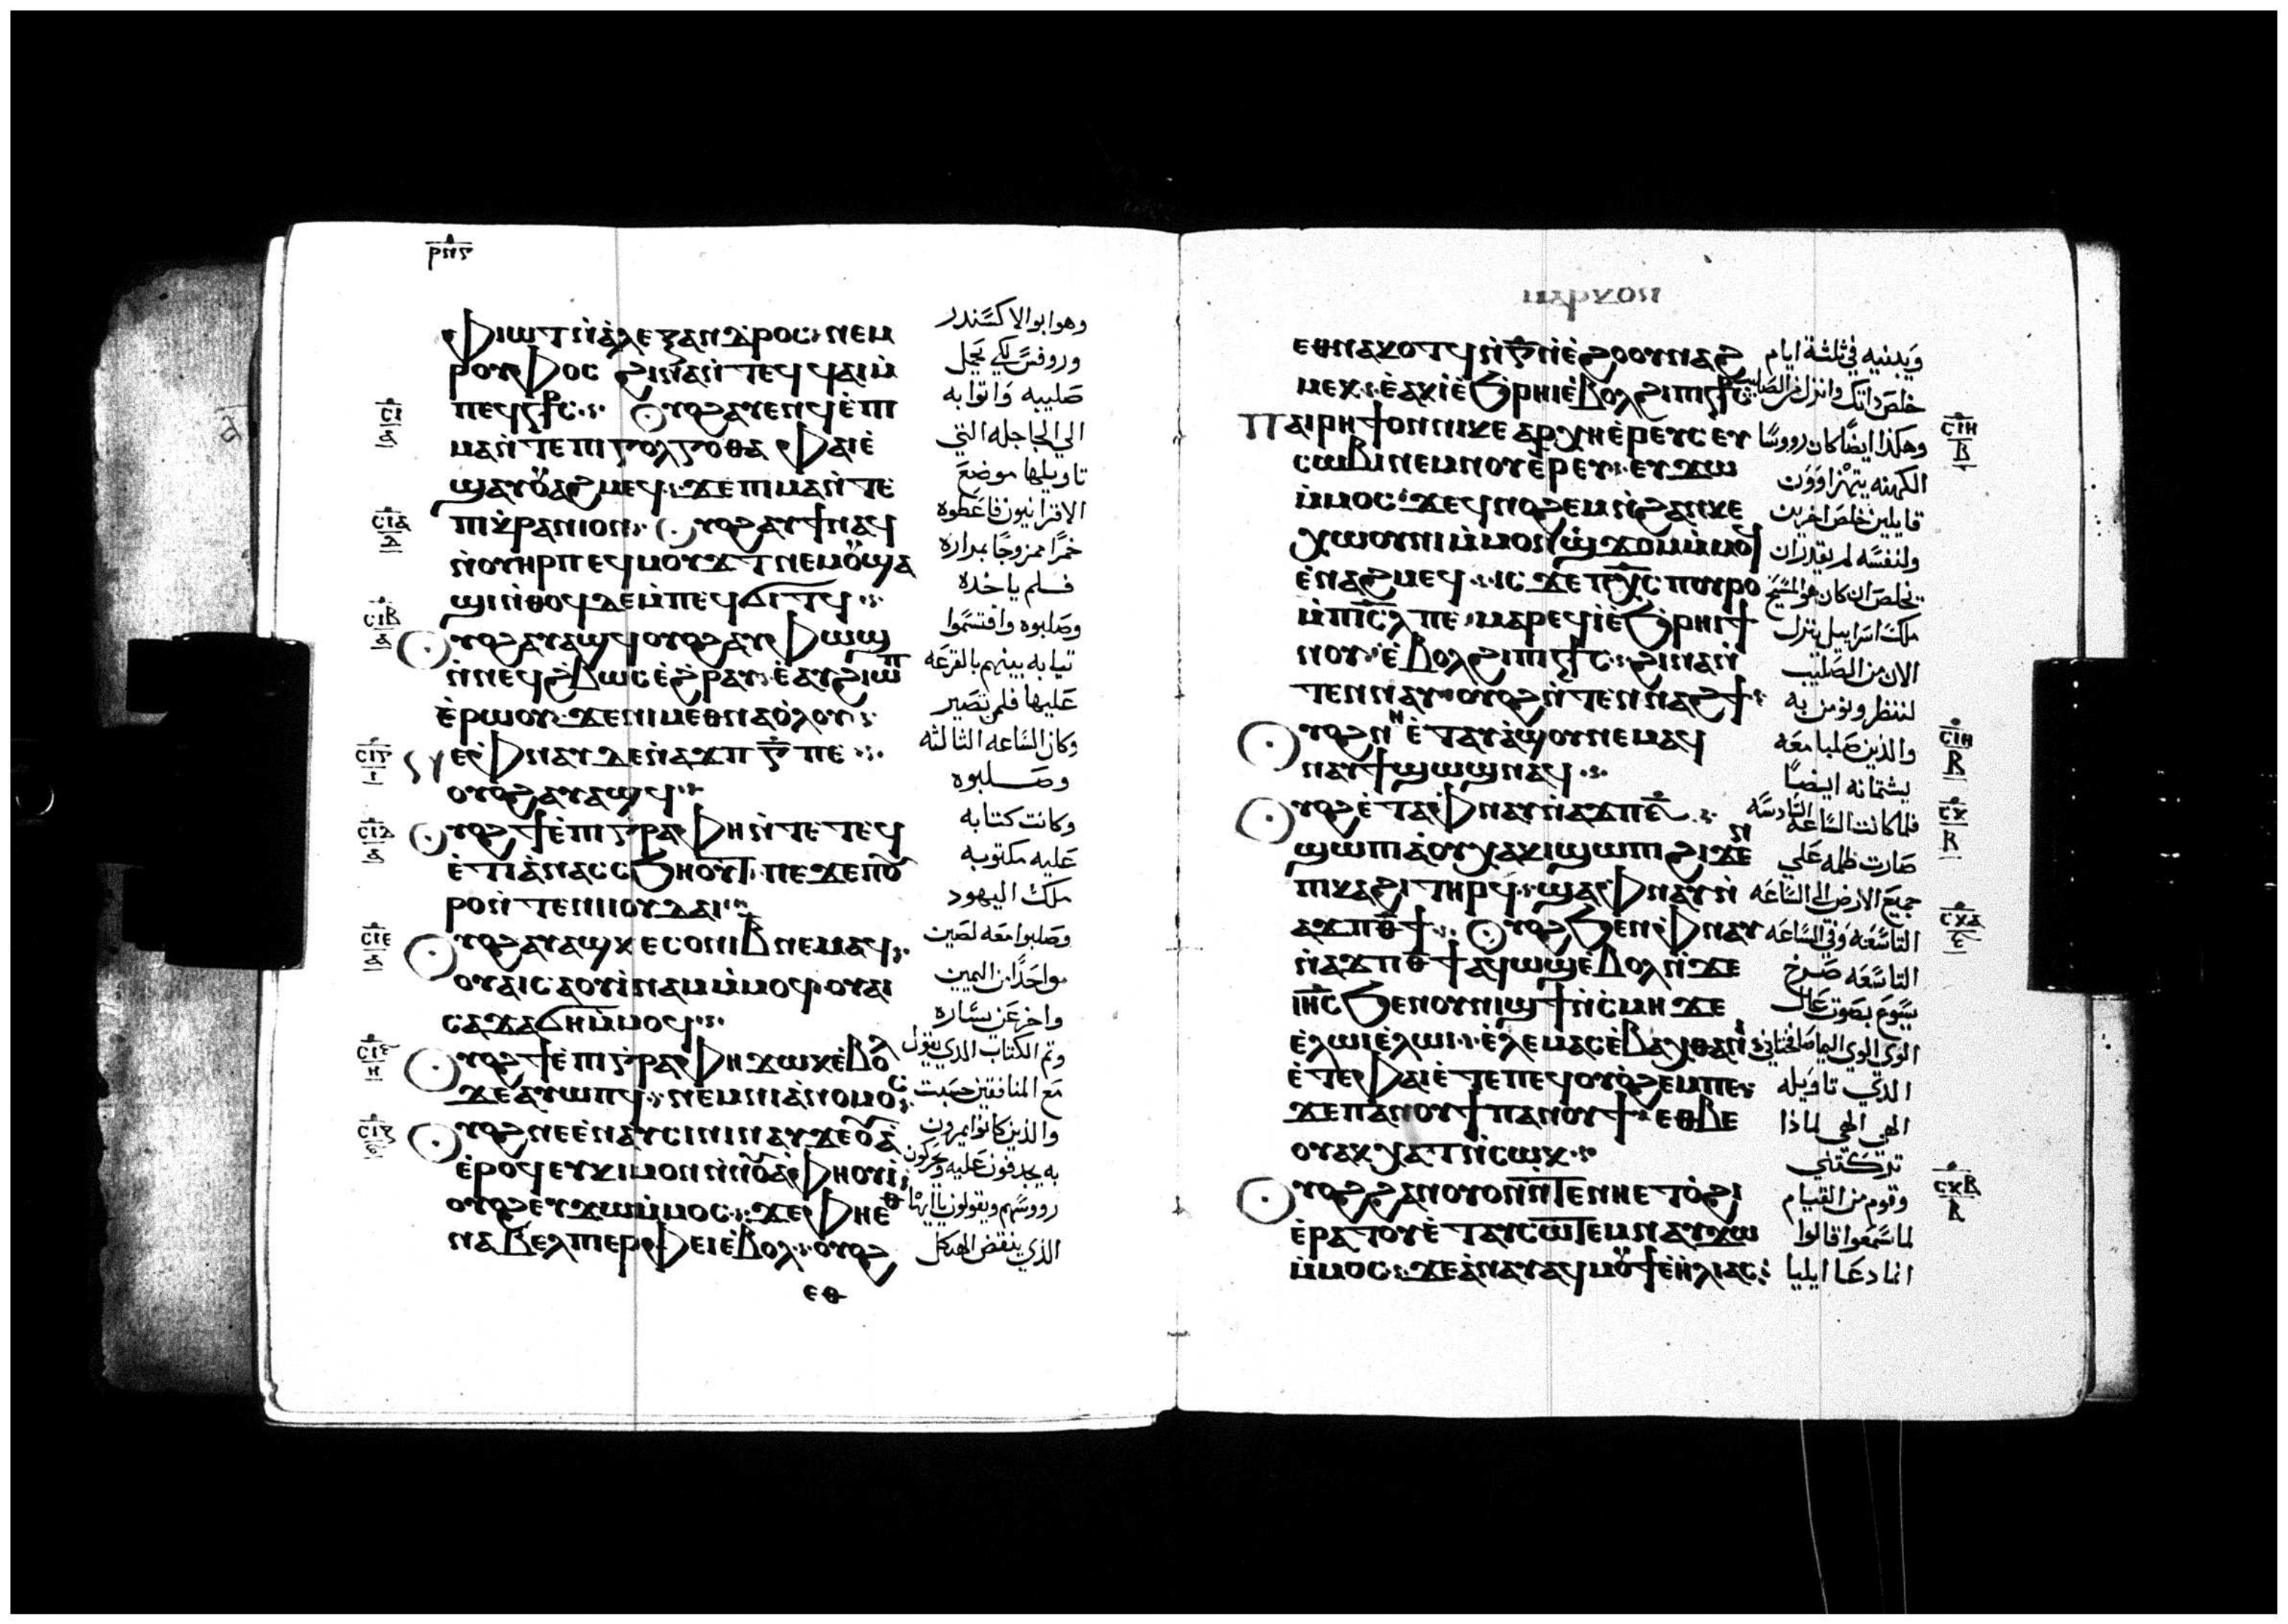 ⲣⲛⲋ
ⲫⲓⲱⲧ ⲛ̀ⲁ̀ⲗⲉⲝⲁⲛⲇⲣⲟⲥ ⲛⲉⲙ
وهو ابو الاكسندر
ⲣⲟⲩⲫⲟⲥ ϩⲓⲛⲁ ⲛ̀ⲧⲉϥϥⲁⲓ ⲙ̀
وروفس لكي يحمل
ⲡⲉϥⲥϯⲥ ⲟⲩⲟϩ ⲁⲩⲉⲛϥ ⲉ̀ⲡⲓ
صليبه واتوا به
ⲙⲁ ⲛ̀ⲧⲉ ⲡⲓⲅⲟⲗⲅⲟⲑⲁ ⲫⲁⲓ ⲉ̀
الي الجاجله التي
ϣⲁⲩⲟⲩⲁϩⲙⲉϥ ϫⲉ ⲡⲓⲙⲁ ⲛ̀ⲧⲉ
تاويلها موضع
ⲡⲓⲕⲣⲁⲛⲓⲟⲛ ⲟⲩⲟϩ ⲁⲩϯ ⲛⲁϥ
الاقرانيون فاعطوه
ⲛ̀ⲟⲩⲏⲣⲡ ⲉϥⲙⲟⲩϫⲧ ⲛⲉⲙ ⲟⲩϣⲁ
خمرا ممزوجا بمراره
ϣⲓ ⲛ̀ⲑⲟϥ ⲇⲉ ⲙ̀ⲡⲉϥϭⲓⲧϥ
فلم ياخده
ⲟⲩⲟϩ ⲁⲩⲁϣϥ ⲟⲩⲟϩ ⲁⲩⲫⲱϣ
وصلبوه واقتسموا
ⲛ̀ⲛⲉϥϩ̀ⲃⲱⲥ ⲉ̀ϩⲣⲁⲩ ⲉ̀ⲁⲩϩⲓⲱⲡ
تيابه بينهم بالقرعه
ⲉ̀ⲣⲱⲟⲩ ϫⲉ ⲛⲓⲙ ⲉⲑⲛⲁⲟ̀ⲗⲟⲩ
عليها فلمن تصير
ⲛⲉ ⲫⲛⲁⲩ ⲇⲉ ⲛ̀ⲁϫⲡ ⲅ̅ ⲡⲉ
وكان الساعه الثالثه
ⲟⲩⲟϩ ⲁⲩⲁϣϥ
وصلبوه
ⲟⲩⲟϩ ϯⲉ̀ⲡⲓⲅⲣⲁⲫⲏ ⲛ̀ⲧⲉ ⲧⲉϥ
وكانت كتابه
ⲉ̀ⲧⲓⲁ ⲛⲁⲥⲥϧⲏⲟⲩⲧ ⲡⲉ ϫⲉ ⲡⲟⲩ
عليه مكتوبه
ⲣⲟ ⲛ̀ⲧⲉ ⲛⲓⲓⲟⲩⲇⲁⲓ
ملك اليهود
ⲟⲩⲟϩ ⲁⲩⲁϣ ⲕⲉⲥⲟⲛⲓ ⲃ̅ ⲛⲉⲙⲁϥ
وصلبوا معه لصين
ⲟⲩⲁⲓ ⲥⲁⲟⲩⲓ̀ⲛⲁⲙ ⲙ̀ⲙⲟϥ ⲟⲩⲁⲓ
واحدا من اليمين
ⲥⲁϫⲁϭⲏ ⲙ̀ⲙⲟϥ
واخر عن يساره
ⲟⲩⲟϩ ϯⲉ̀ⲡⲓⲅⲣⲁⲫⲏ ϫⲱⲕ ⲉ̀ⲃⲟⲗ
وتم الكتاب الدي يقول
ϫⲉ ⲁⲩⲟⲡϥ ⲛⲉⲙ ⲛⲓⲁ̀ⲛⲟⲙⲟⲥ
مع المنافقين حسبت
ⲟⲩⲟϩ ⲛⲉ ⲉ̀ⲛⲁⲩⲥⲓⲛⲓ ⲛⲁⲩϫⲉⲟⲩⲁ
والذين كانوا يمرون
ⲉ̀ⲣⲟϥ ⲉⲩⲕⲓⲙ ⲟⲛ ⲛ̀ⲛⲟⲩⲁⲫⲏⲟⲩⲓ
به يجدفون عليه ويحركون
ⲟⲩⲟϩ ⲉⲩϫⲱ ⲙ̀ⲙⲟⲥ ϫⲉ ⲫⲏ ⲉⲑ
رووسهم ويقولون يا ايها
ⲛⲁⲃⲉⲗ ⲡⲓⲉⲣⲫⲉⲓ ⲉ̀ⲃⲟⲗ ⲟⲩⲟϩ
الذي ينقض الهيكل
ⲉⲑ
ⲥⲓ ⲁ
ⲥⲓⲁ ⲇ
ⲥⲓⲃ ⲁ
ⲥⲓⲅ ⲓ
ⲥⲓⲇ ⲁ
ⲥⲓⲉ ⲁ
ⲥⲓⲋ ⲏ
ⲥⲓⲍ ⲋ
ⲉⲑⲛⲁⲕⲟⲧϥ ⲛ̀ⲅ̅ ⲛ̀ⲉ̀ϩⲟⲟⲩ ⲛⲁϩ
ويبنيه في ثلثة ايام
ⲙⲉⲕ ⲉ̀ⲁⲕⲓ̀ ⲉ̀ϧⲣⲏⲓ ⲉ̀ⲃⲟⲗ ϩⲓ ⲡⲓⲥϯⲥ
خلص داتك وانزل من الصليب
ⲡⲁⲓⲣⲏϯ ⲟⲛ ⲛⲓⲕⲉⲁⲣⲭⲏⲉ̀ⲣⲉⲩⲥ ⲉⲩ
وهكذا ايضا كان رووسا
ⲥⲱⲃⲓ ⲛⲉⲙ ⲛⲟⲩⲉ̀ⲣⲏⲟⲩ ⲉⲩϫⲱ
الكهنه يتهزاوون
ⲙ̀ⲙⲟⲥ ϫⲉ ⲁϥⲛⲟϩⲉⲙ ⲛ̀ϩⲁⲛⲕⲉ
قايلين خلص اخرين
ⲭⲱⲟⲩⲛⲓ ⲙ̀ⲙⲟⲛ ϣ̀ϫⲟⲙ ⲙ̀ⲙⲟϥ
ولنفسه لم يقدر ان
ⲉ̀ⲛⲁϩⲙⲉϥ ⲓⲥϫⲉ ⲡⲭ̅ⲥ ⲡⲟⲩⲣⲟ
يخلص ان كان هو المسيح
ⲙ̀ⲡⲓⲥ̅ⲗ ⲡⲉ ⲙⲁⲣⲉϥⲓ̀ ⲉ̀ϧⲣⲏⲓ ϯ
ملك اسراييل ينزل
ⲛⲟⲩ ⲉ̀ⲃⲟⲗ ϩⲓ ⲡⲓⲥϯⲥ ϩⲓⲛⲁ ⲛ̀
الان من الصليب
ⲧⲉⲛⲛⲁⲩ ⲟⲩⲟϩ ⲛ̀ⲧⲉⲛⲛⲁϩϯ
لننظر ونومن به
ⲟⲩⲟϩ ⲛⲏ ⲉ̀ⲧⲁⲩⲁ̀ϣⲟⲩ ⲛⲉⲙⲁϥ
والذين صلبا معه
ⲛⲁⲩϯϣⲱϣ ⲛⲁϥ
يشتمانه ايضا
ⲟⲩⲟϩ ⲉ̀ⲧⲁ ⲫⲛⲁⲩ ⲛ̀ⲁϫⲡ ⲋ̅
فلما كانت الساعه السادسه
ϣⲱⲡⲓ ⲁ̀ ⲟⲩⲭⲁⲕⲓ ϣⲱⲡⲓ ϩⲓϫⲉⲛ
صارت ظلمه علي
ⲡⲓⲕⲁϩⲓ ⲧⲏⲣϥ ϣⲁ ⲫⲛⲁⲩ ⲛ̀
جميع الارض الي الساعه
ⲁϫⲡ ⲑ̅ϯ ⲟⲩⲟϩ ϧⲉⲛ ⲫⲛⲁⲩ
التاسعه وفي الساعه
ⲛ̀ⲁϫⲡ ⲑ̅ϯ ⲁϥⲱϣ ⲉ̀ⲃⲟⲗ ⲛ̀ϫⲉ
التاسعه صرخ
ⲓⲏ̅ⲥ ϧⲉⲛ ⲟⲩⲛⲓϣϯ ⲛ̀ⲥ̀ⲙⲏ ϫⲉ
يسوع بصوت عال
ⲉ̀ⲗⲱⲓ ⲉ̀ⲗⲱⲓ ⲉ̀ⲗⲉⲙⲁ ⲥⲉⲃⲁⲭⲑⲁⲛⲓ
الوي الوي اليما صافختاني
ⲉ̀ⲧⲉ ⲫⲁⲓ ⲉ̀ⲧⲉ ⲡⲉϥⲟⲩⲟ̀ϩⲉⲙ ⲡⲉ
الذي تاويله
ϫⲉ ⲡⲁⲛⲟⲩϯ ⲡⲁⲛⲟⲩϯ ⲉⲑⲃⲉ
الهي الهي لماذا
ⲟⲩ ⲁⲕⲭⲁⲧ ⲛ̀ⲥⲱⲕ
تركتني
ⲟⲩⲟϩ ϩⲁⲛⲟⲩⲟⲛ ⲛ̀ⲧⲉ ⲛⲏ ⲉⲧⲟ̀ϩⲓ
وقوم من القيام
ⲉ̀ⲣⲁⲧⲟⲩ ⲉ̀ⲧⲁⲩⲥⲱⲧⲉⲙ ⲛⲁⲩϫⲱ
لما سمعوا قالوا
ⲙ̀ⲙⲟⲥ ϫⲉ ⲁ̀ⲛⲁⲩ ⲁϥⲙⲟⲩϯ ⲉ̀ⲏ̀ⲗⲓⲁⲥ
انما دعا ايليا
ⲥⲓⲏ ⲃ
ⲥⲓⲏ ⲃ
ⲥⲕ ⲃ
ⲥⲕⲁ ⲋ
ⲥⲕⲃ ⲃ